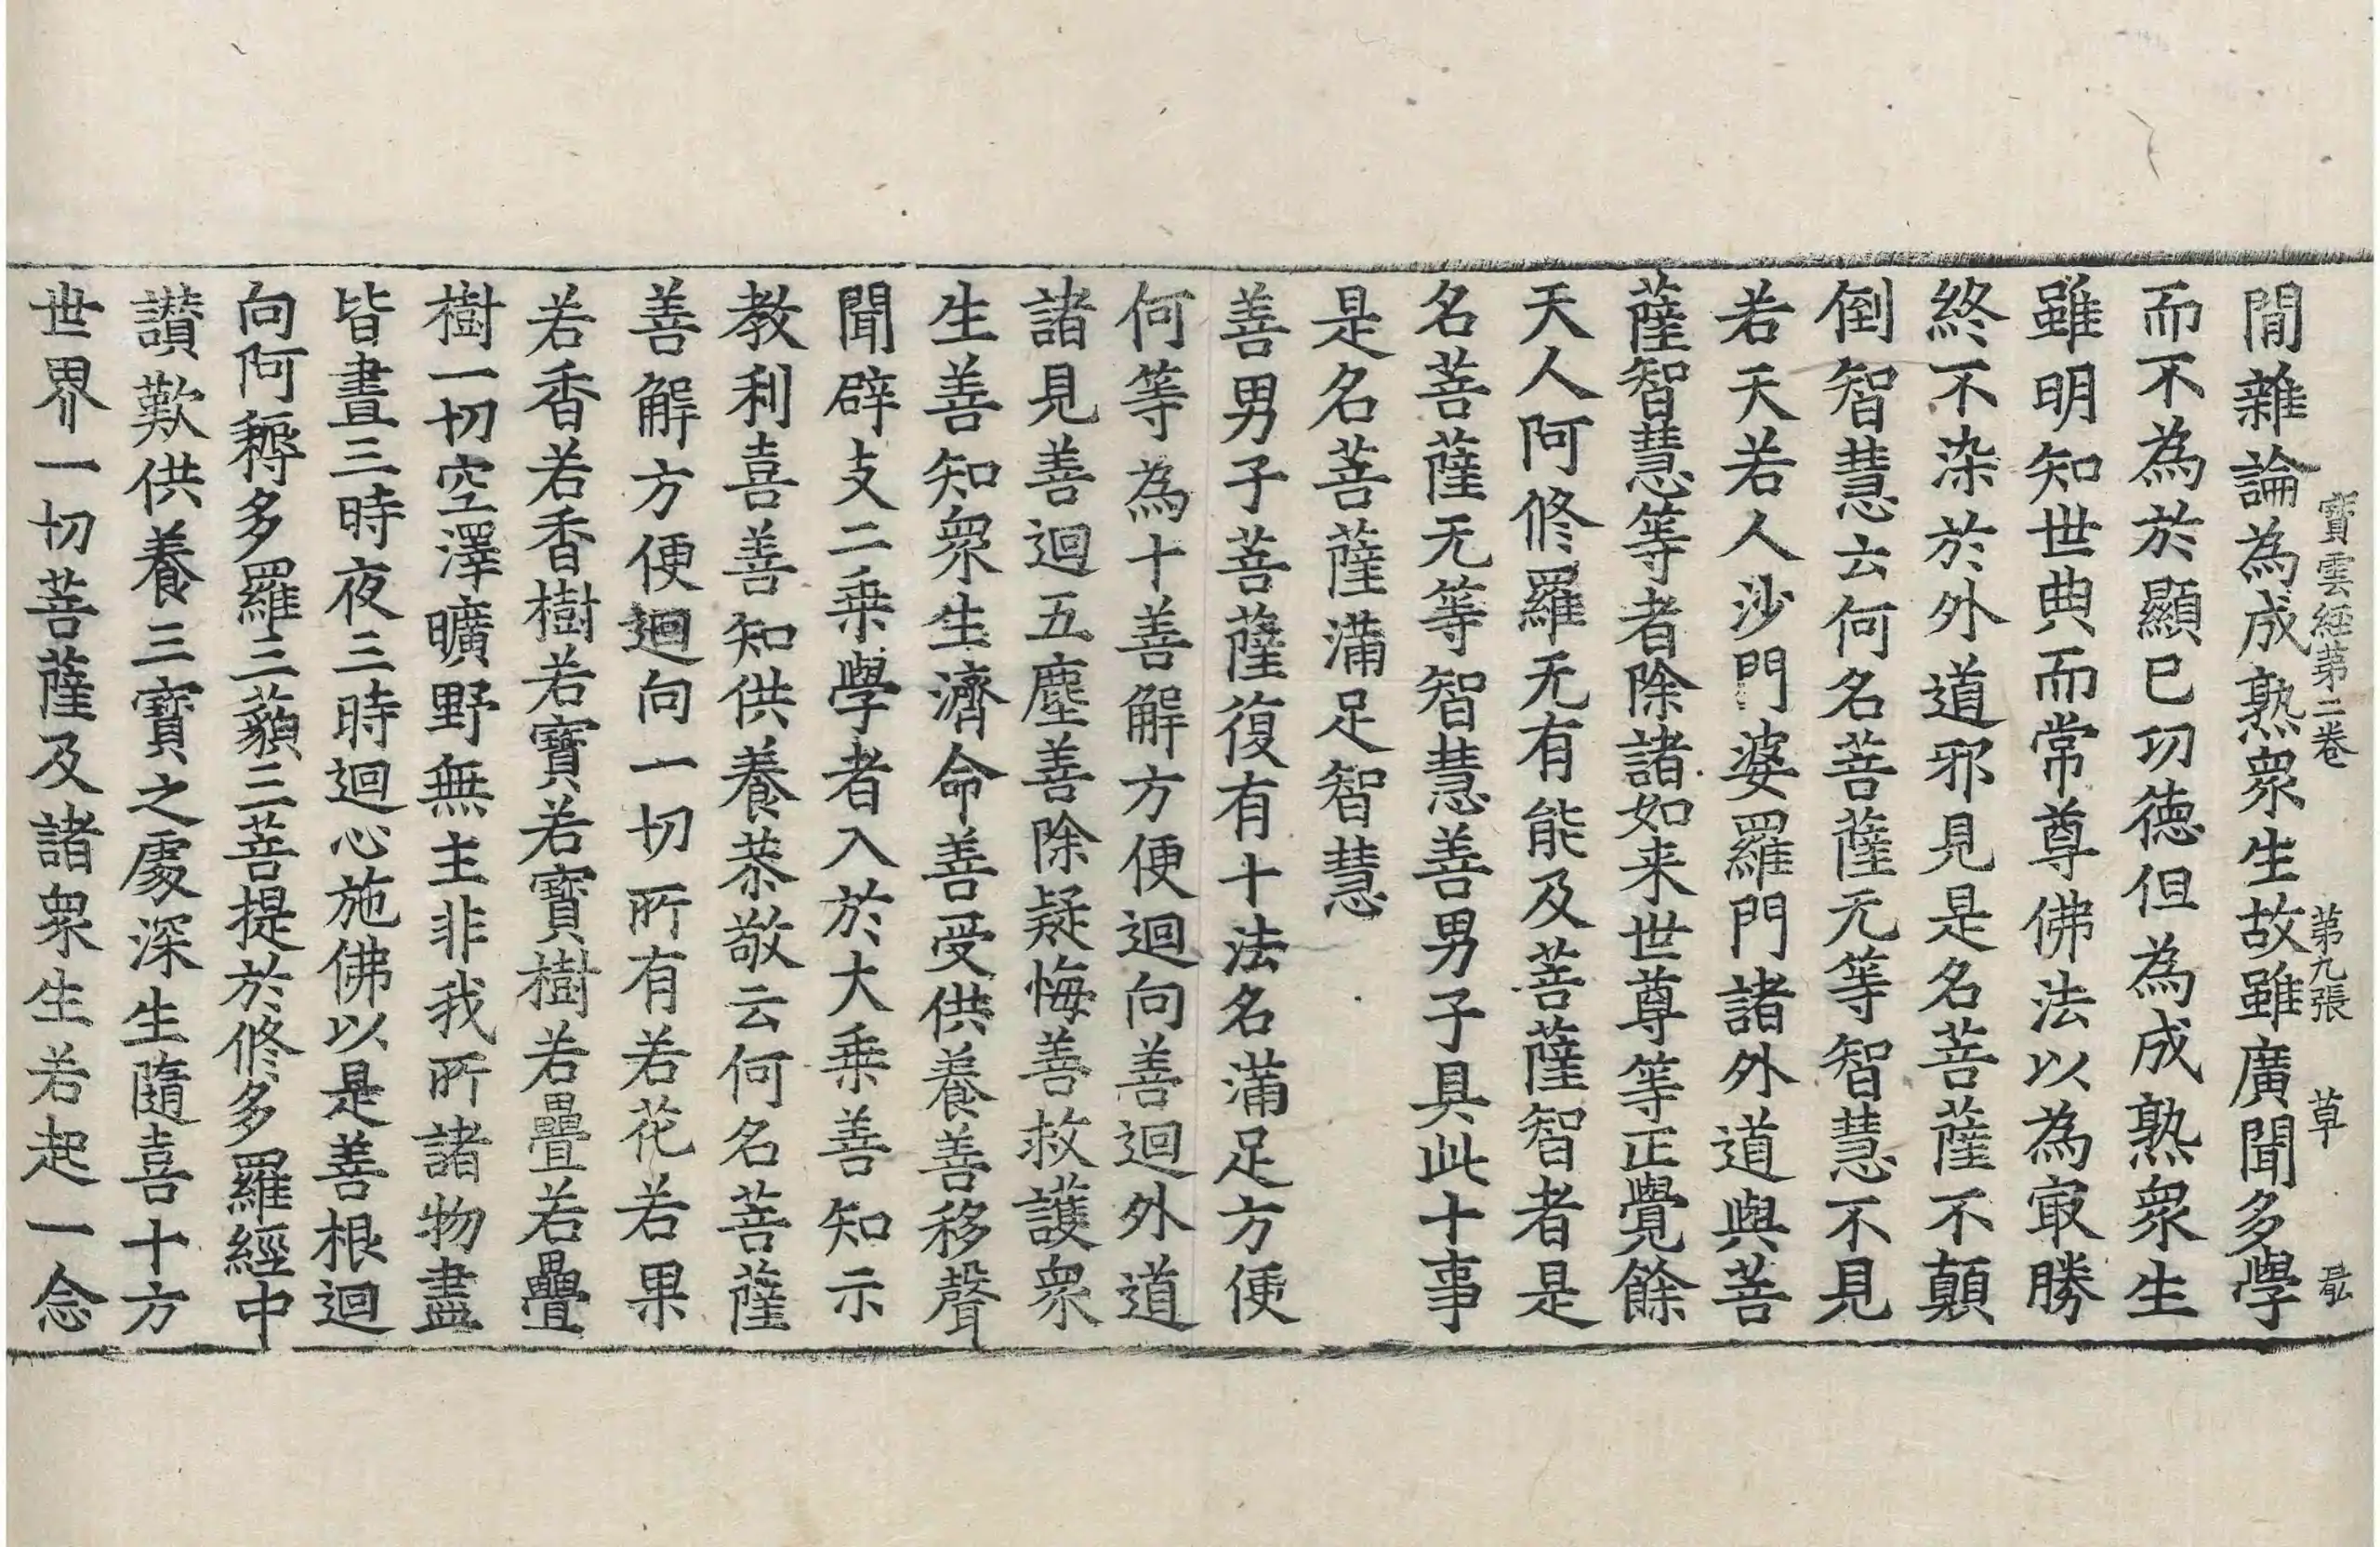 寶雲經第二卷 第九張 草
閒雜論為成熟衆生故雖廣聞多學
而不為於顯已功德但為成熟衆生
雖明知世典而常尊佛法以為冣勝
終不染於外道邪見是名菩薩不顛
倒智慧云何名菩薩无等智慧不見
若天若人沙門婆羅門諸外道與菩
薩智慧等者除諸如来世尊等正覺餘
天人阿修羅无有能及菩薩智者是
名菩薩无等智慧善男子具此十事
是名菩薩滿足智慧
善男子菩薩復有十法名滿足方便
何等為十善解方便迴向善迴外道
諸見善迴五塵善除疑悔善救護衆
生善知衆生濟命善受供養善移聲
聞辟支二乗學者入於大乗善知示
教利喜善知供養恭敬云何名菩薩
善解方便迴向一切所有若花若果
若香若香樹若寶若寶樹若疊若疊
樹一切空澤曠野無主非我所諸物盡
皆晝三時夜三時迴心施佛以是善根迴
向阿耨多羅三藐三菩提於修多羅經中
讃歎供養三寶之處深生隨喜十方
世界一切菩薩及諸衆生若起一念